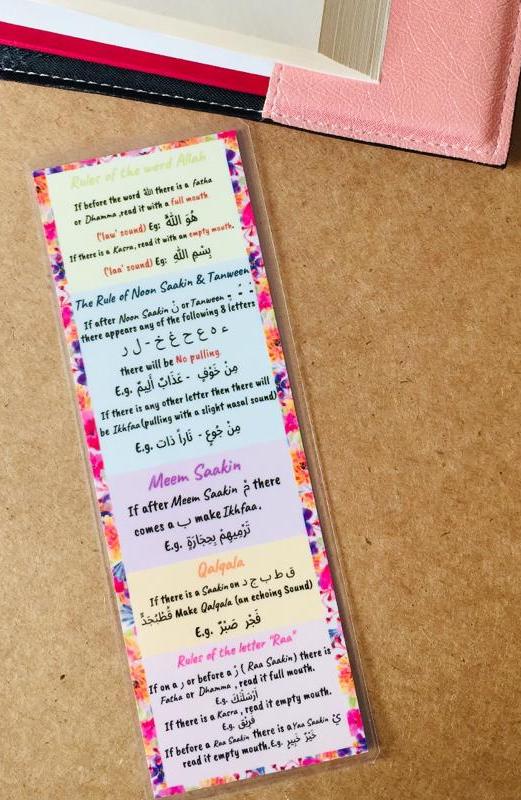 Rules of the word Allah
If before the word الله there is a Fatha
or Dhamma ,read it with a full mouth
('law' sound) Eg: هُوَ اللّٰهُ
If there is a Kasra, read it with an empty mouth.
('laa' sound) Eg: بِسْمِ اللّٰهِ
The Rule of Noon Saakin & Tanween
If after Noon Saakin نْ or Tanween ـٌ ـٍ ـً
there appears any of the following 8 letters
ء ه ع ح غ خ - ل ر
there will be No pulling.
E.g. مِنْ خَوْفٍ - عَذَابٌ اَلِيْمٌ
If there is any other letter then there will
be Ikhfaa(pulling with a slight nasal sound)
E.g. مِنْ جُوْعٍ - نَاراً ذَاتَ
Meem Saakin
If after Meem Saakin مْ there
comes a ب make Ikhfaa.
E.g. تَرْمِيهِمْ بِحِجَارَةٍ
Qalqala
If there is a Saakin on ق ط ب ج د
قُطْبُجَدٍّ Make Qalqala (an echoing Sound)
E.g. فَجْر صَبْرٌ
Rules of the letter "Raa"
If on a ر or before a رْ ( Raa Saakin) there is
Fatha or Dhamma , read it full mouth.
E.g. أَرْسَلْنَكَ
If there is a Kasra , read it empty mouth.
E.g. فَرِيْقٌ
If before a Raa Saakin there is a Yaa Saakin يْ
read it empty mouth.E.g. خَيْرٌ خَبِير